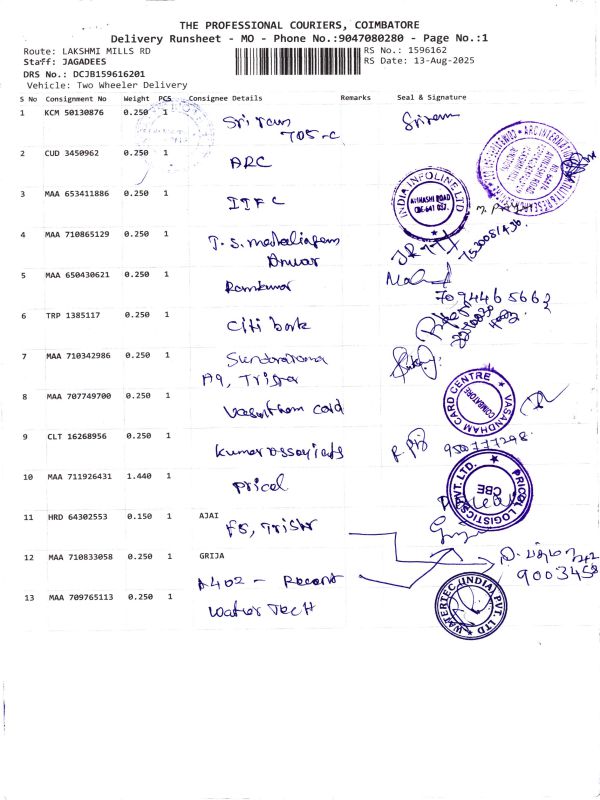 THE PROFESSIONAL COURIERS, COIMBATORE
Delivery Runsheet - MO - Phone No.:9047080280 - Page No.:1
Route: LAKSHMI MILLS RD
RS No.: 1596162
Staff: JAGADEES
RS Date: 13-Aug-2025
DRS No.: DCJB159616201
Vehicle: Two Wheeler Delivery
S No Consignment No Weight PCS Consignee Details Remarks Seal & Signature
1 KCM 50130876 0.250 1 Sriram Sriram
705-C
2 CUD 3450962 0.250 1 ARC
3 MAA 653411886 0.250 1 IIFC
INDIA INFOLINE LTD
AVINASHI ROAD
CBE-641 037.
4 MAA 710865129 0.250 1 T.S.
Anwar
5 MAA 650430621 0.250 1 Ramkumar
7094465662
6 TRP 1385117 0.250 1 Citi bank
7 MAA 710342986 0.250 1
A9,
8 MAA 707749700 0.250 1 Vasantham card
VASANDHAM CARD CENTRE
COIMBATORE
9 CLT 16268956 0.250 1 Kumar
9500777298.
10 MAA 711926431 1.440 1 Pricol
PRICOL LOGISTICS PVT. LTD.
CBE
11 HRD 64302553 0.150 1 AJAI
12 MAA 710833058 0.250 1 GRIJA
A402 -
13 MAA 709765113 0.250 1 Water Tech
WATERTEC (INDIA) PVT. LTD